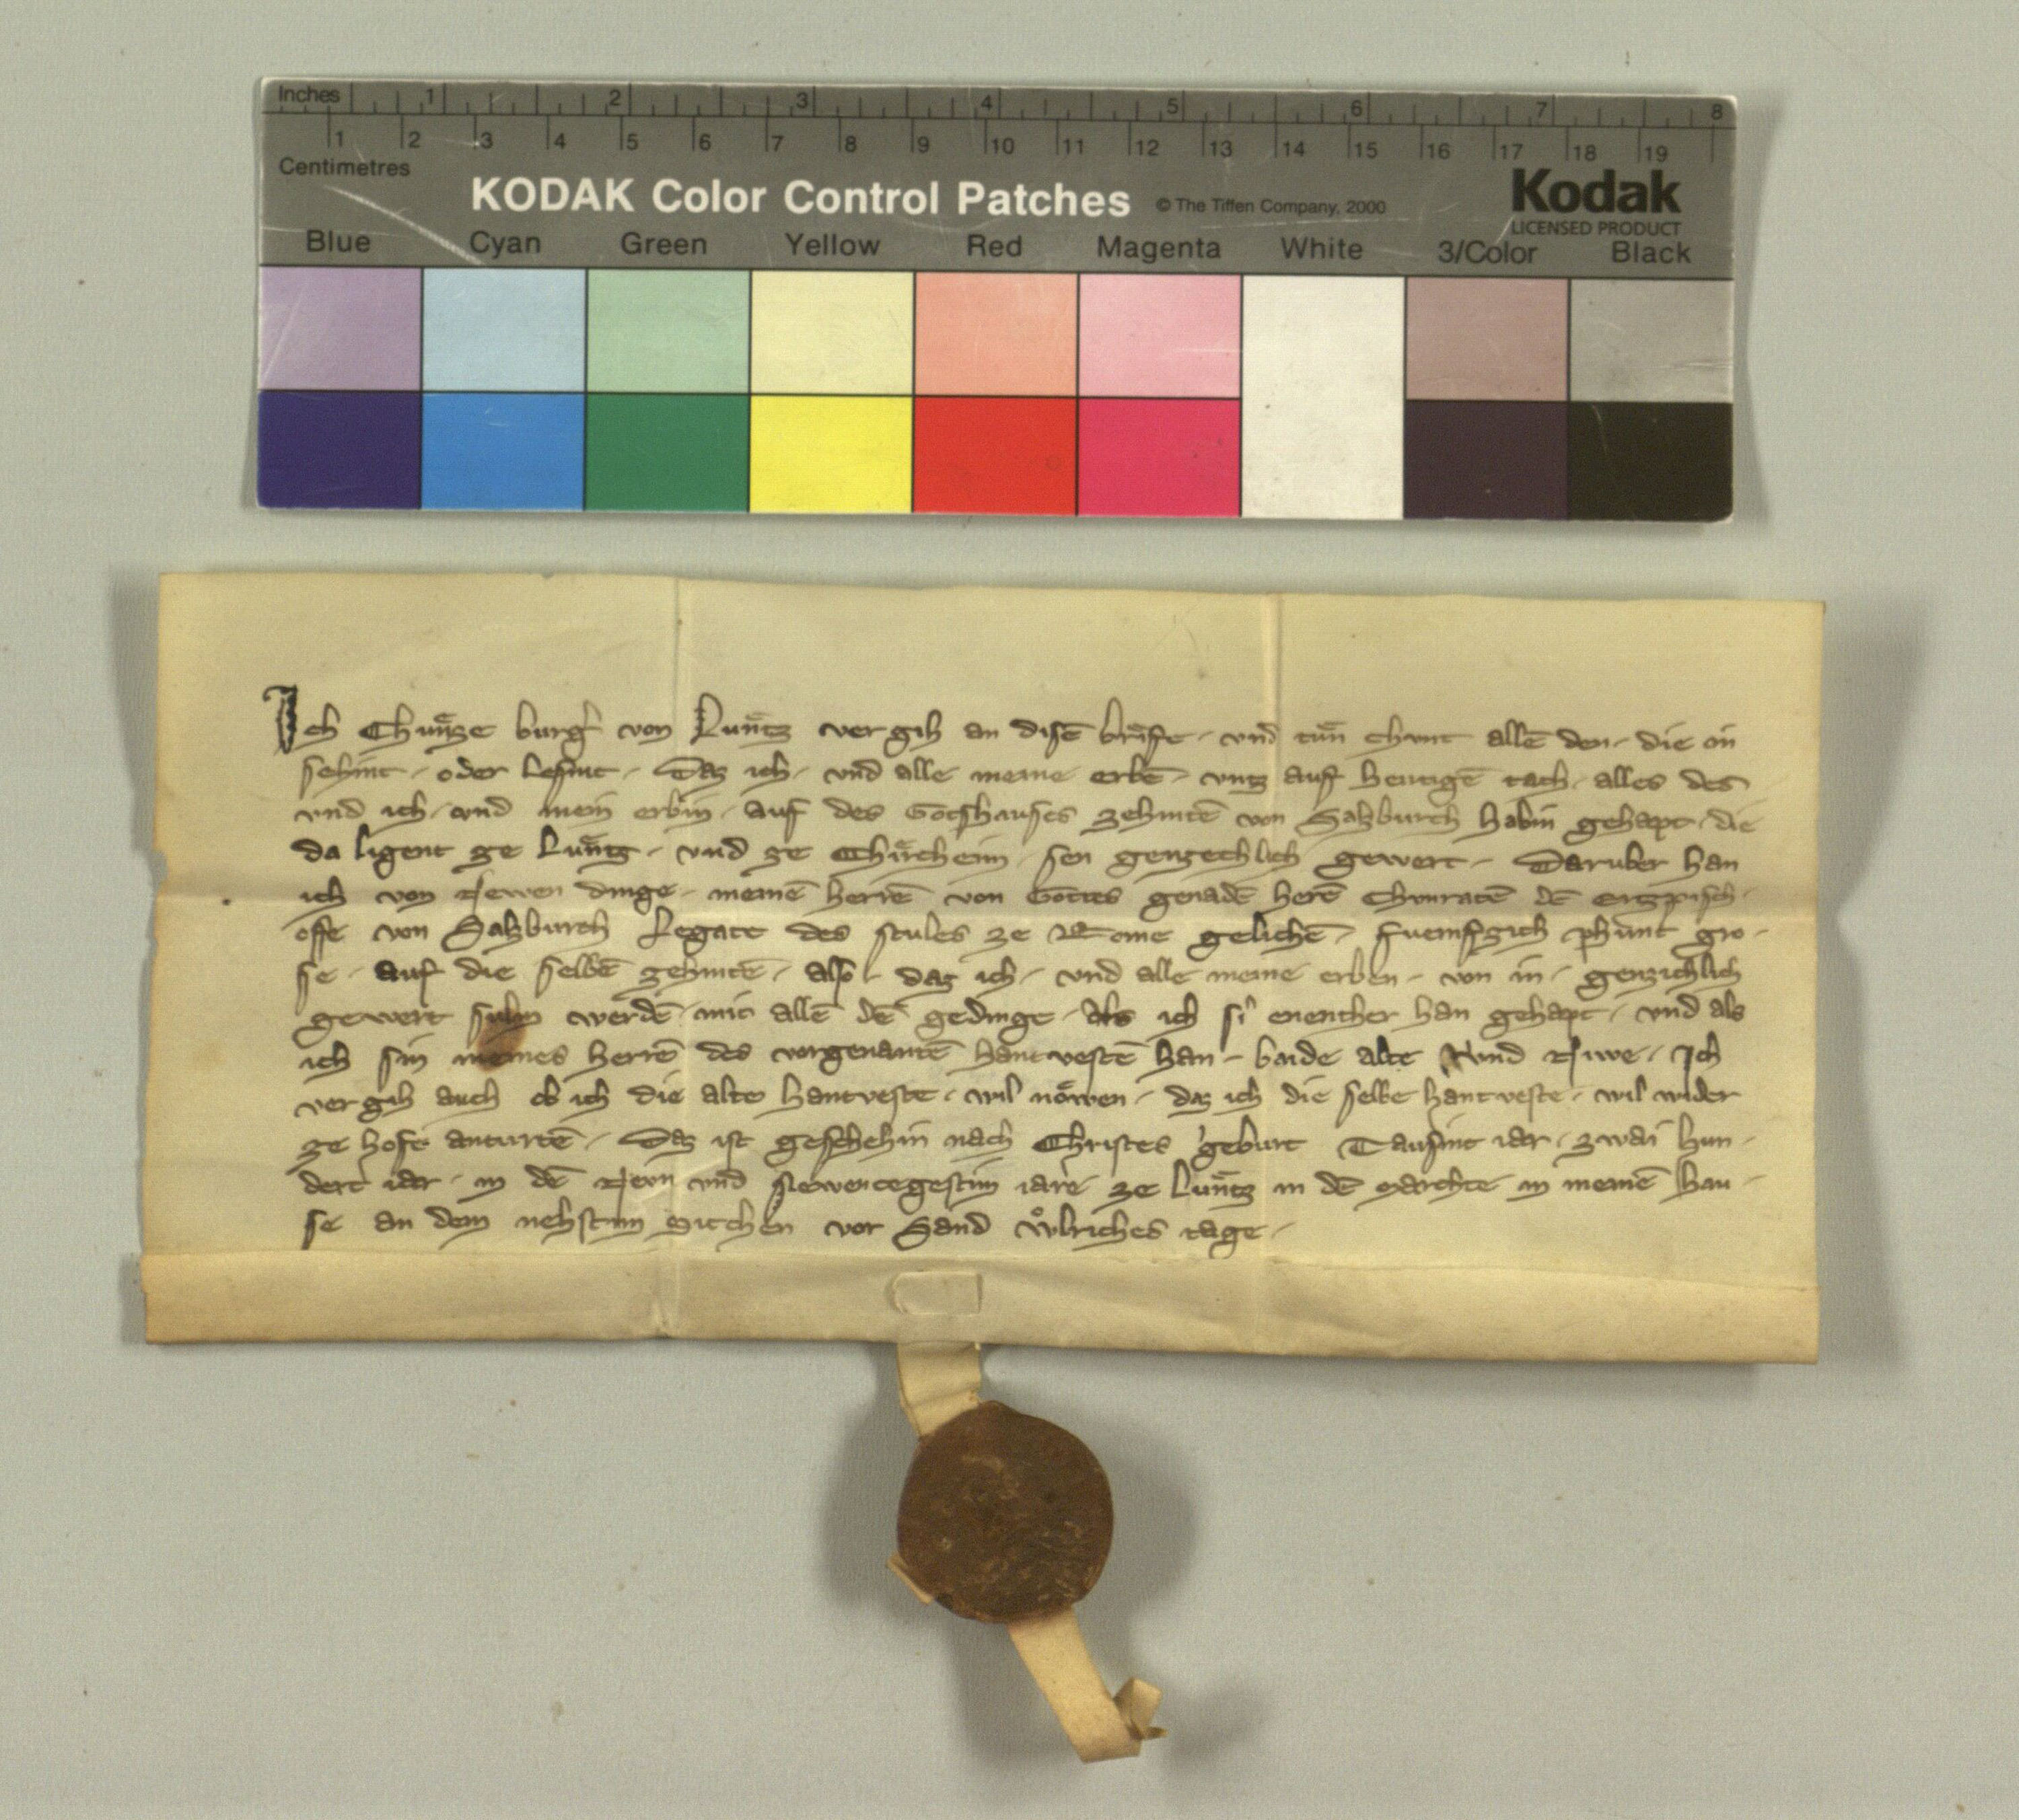 Inches 1 2 3 4 5 6 7 8
1 2 3 4 5 6 7 8 9 10 11 12 13 14 15 16 17 18 19
Centimetres
KODAK Color Control Patches © The Tiffen Company, 2000 Kodak
LICENSED PRODUCT
Blue Cyan Green Yellow Red Magenta White 3/Color Black
Ich Chunze burg̉ von Luntz vergih an disē briefe · vnd tun chunt allē den · die in
sehint · oder lesint · Daz ich · vnd alle meine erbē · vntz auf heutigē tach · alles des
vnd ich · vnd mein erbin · auf des Gotshauses zehintē von Salzburch habin gehapt · die
da ligent ze Luntz · vnd ze Chircheim · sen genzechlich gewert · Daruber han
ich von Newen dinge · meinē herrē von Gottes genadē herē Chunratē dē ertzpisch ·
offe von Salzburch Legate des stules ze Rome gelichē · fuemfzich phunt gro ·
se · auf die selbē zehintē · also daz ich · vnd alle meine erben · von in · genzichlich
gewert suln werdē · mit allē dē gedinge · Als ich si enenther han gehapt · vnd als
ich sin meines herrē des vorgenantē hantvestē han · baide alte vnd Niwe · Ich
vergih auch ob ich die alte hantveste · wil nöwen · daz ich die selbe hantveste · wil wider
ze hofe anturtē · Daz ist geschehin nach Christes geburt Tausint iar · zwai hun ·
dert iar · in dē Neun vnd niewentegestim iare ze Luntz in dē marchte in meinē hau ·
se an dem nehstim mitchen vor Sand wͦlriches tage ·